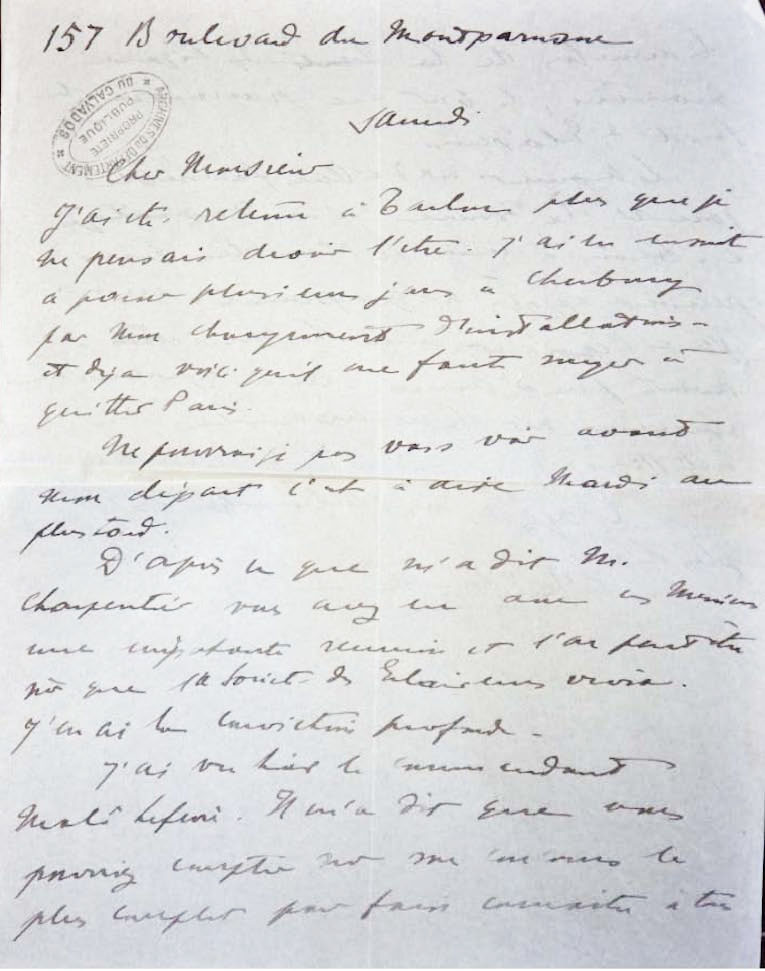 157 Boulevard du Montparnasse
Samedi
ARCHIVES DU DÉPARTEMENT DU CALVADOS
PROPRIÉTÉ PUBLIQUE
Cher Monsieur
J'ai été retenu à Toulon plus que je
ne pensais devoir l'être. J'ai eu ensuite
à passer plusieurs jours à Cherbourg
par mon changement d'installation –
et déjà voici qu'il me faut songer à
quitter Paris.
Ne pourrai-je pas vous voir avant
mon départ c'est à dire Mardi au
plus tard.
D'après ce que m'a dit M.
Charpentier vous avez eu avec ces Messieurs
une importante réunion et l'on peut dire
que la Société des Eclaireurs vivra.
J'en ai la conviction profonde.
J'ai vu hier le commandant
Il m'a dit que vous
pouviez compter sur son concours le
plus complet pour faire connaître à